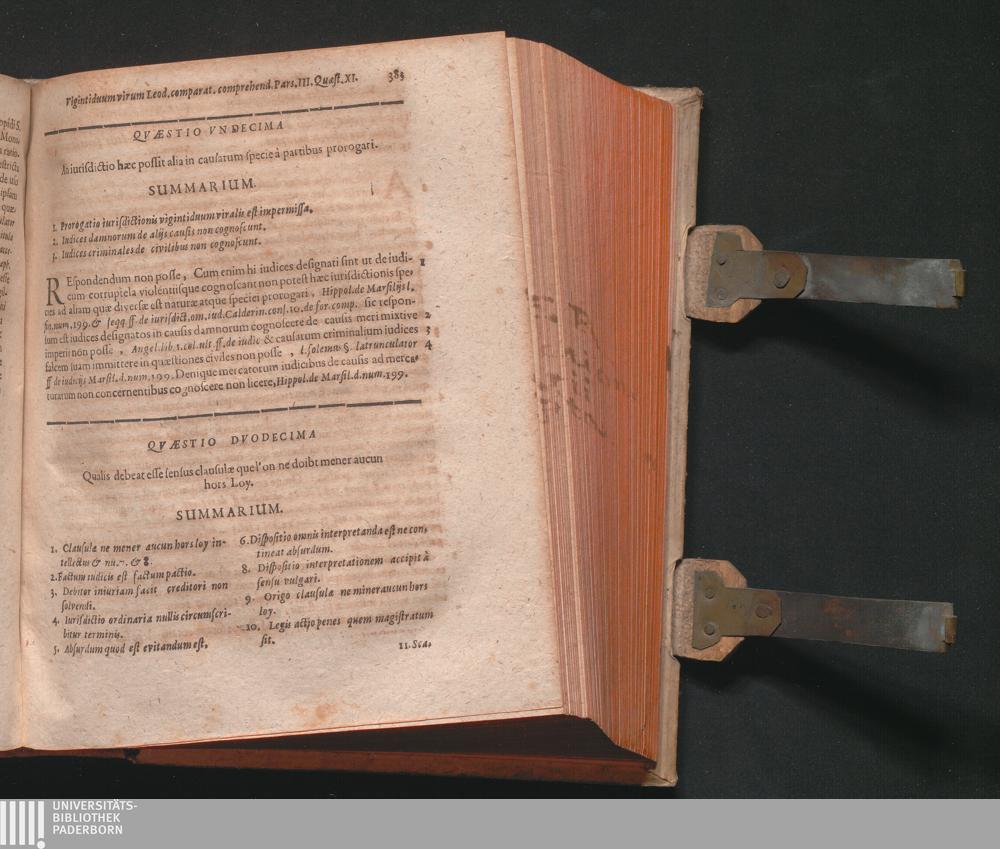 Vigintiduum virum Leod. comparat. comprehend. Pars. III. Quæst. XI. 383
QVÆSTIO VNDECIMA
An iurisdictio hæc possit alia in causarum specie à partibus prorogari.
SUMMARIUM.
1. Prorogatio iurisdictionis vigintiduum viralis est impermissa.
2. Iudices damnorum de alijs causis non cognoscunt.
3. Iudices criminales de civilibus non cognoscunt.
REspondendum non posse, Cum enim hi iudices designati sint ut de iudi- 1
cum corruptela violentiisque cognoscant non potest hæc iurisdictionis spe-
cies ad aliam quæ diversæ est naturæ atque speciei prorogari, Hippol. de Marsilijs l.
fin. num. 199. & seqq. ff. de iurisdict. om. iud. Calderin. cons. 10. de for. comp. sic respon-
sum est iudices designatos in causis damnorum cognoscere de causis meri mixtive 2
imperii non posse, Angel. lib. 1. col. ult. ff. de iudic & causarum criminalium iudices 3
falcem suam immittere in quæstiones civiles non posse, l. solemus §. latrunculator 4
ff de iudicijs Marsil. d. num. 199. Denique mercatorum iudicibus de causis ad merca-
turam non concernentibus cognoscere non licere, Hippol. de Marsil. d. num. 199.
QVÆSTIO DVODECIMA
Qualis debeat esse sensus clausulæ que l'on ne doibt mener aucun
hors Loy.
SUMMARIUM.
1. Clausula ne mener aucun hors loy in-
tellectus & nu. 7. & 8.
2. Factum iudicis est factum pactio.
3. Debitor iniuriam facit creditori non
solvendi.
4. Iurisdictio ordinaria nullis circumscri-
bitur terminis.
5. Absurdum quod est evitandum est.
6. Dispositio omnis interpretanda est ne con-
tineat absurdum.
8. Dispositio interpretationem accipit à
sensu vulgari.
9. Origo clausulæ ne miner aucun hors
loy.
10. Legis actio penes quem magistratum
sit.
11. Sca-
UNIVERSITÄTS-
BIBLIOTHEK
PADERBORN